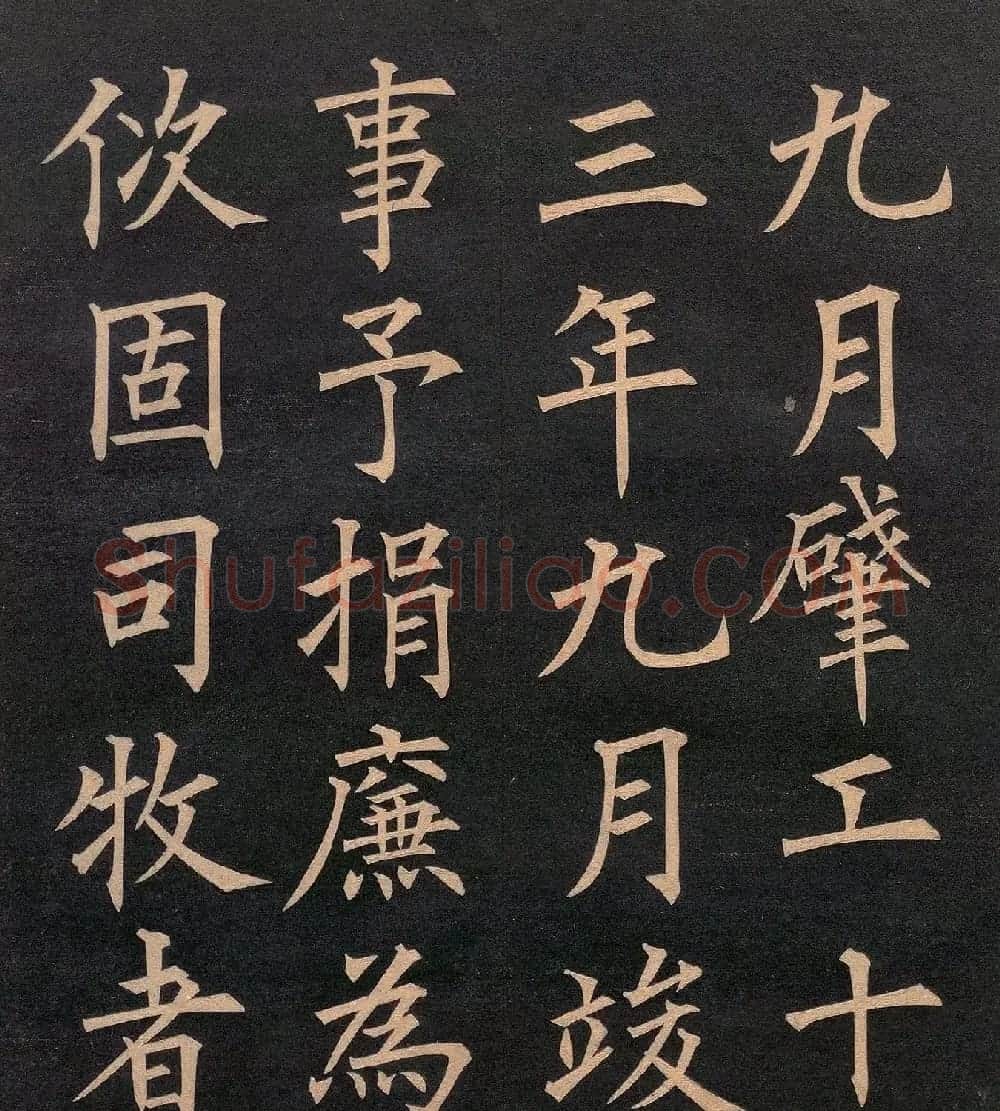 九月肈工十
三年九月竣
事予捐廉為
佽固司牧者
Shufaziliao.com